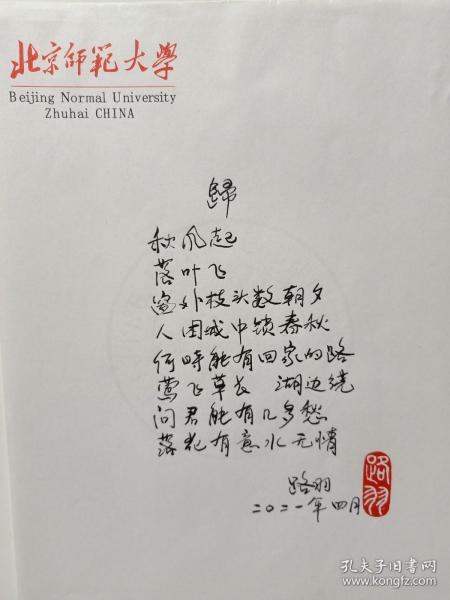 北京师范大学
Beijing Normal University
Zhuhai CHINA
歸
秋风起
落叶飞
窗外枝头数朝夕
人困城中锁春秋
何時能有回家的路
莺飞草长 湖边绕
问君能有几多愁
落花有意水无情
路羽
二〇二一年四月
路羽
孔夫子旧书网
www.kongfz.com